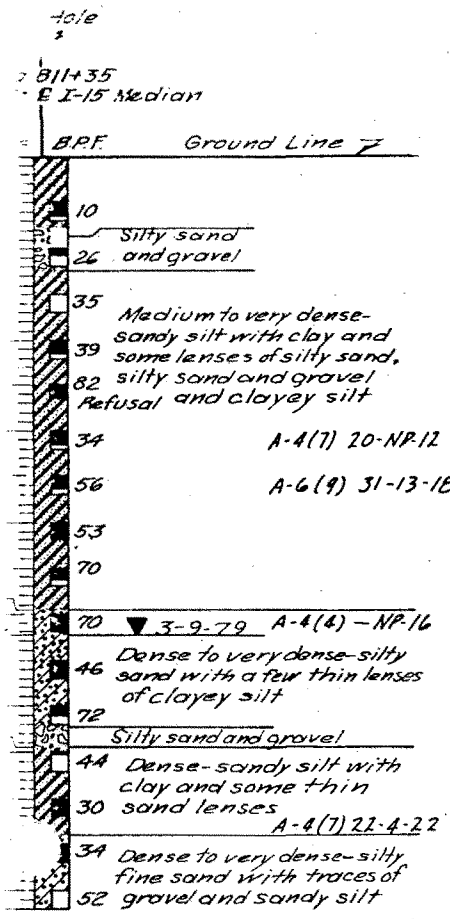 Hole
811+35
I-15 Median
B.P.F. Ground Line
10
Silty sand
26 and gravel
35
Medium to very dense-
sandy silt with clay and
39 some lenses of silty sand,
82 silty sand and gravel
Refusal and clayey silt
34 A-4(7) 20-NP-12
56 A-6(9) 31-13-18
53
70
70 3-9-79 A-4(4) - NP-16
Dense to very dense-silty
46 sand with a few thin lenses
of clayey silt
72
Silty sand and gravel
44 Dense-sandy silt with
clay and some thin
30 sand lenses
A-4(7) 22-4-22
34 Dense to very dense-silty
fine sand with traces of
52 gravel and sandy silt